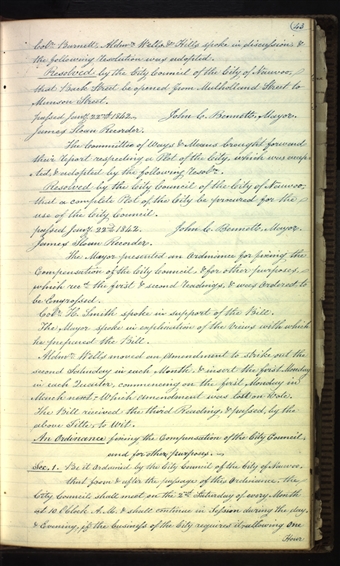 43
Colr. Barnett, Aldmn. Wells & Hills spoke in discussions &
the following Resolution was adopted.
Resolved by the City Council of the City of Nauvoo,
that Bark Street be opened from Mulholland Street to
Munson Street.
passed Jany. 22nd. 1842. John C. Bennett, Mayor.
James Sloan Recorder.
The Committee of Ways & Means brought forward
their report respecting a Plot of the City, which was
& adopted by the following Resolr.
Resolved by the City Council of the City of Nauvoo,
that a complete Plot of the City be procured for the
use of the City Council.
passed Jany. 22nd. 1842. John C. Bennett, Mayor.
James Sloan Recorder.
The Mayor presented an Ordinance for fixing the
Compensation of the City Council, & for other purposes,
which recd. the first & second Readings, & was Ordered to
be Engrossed.
Colr. H. Smith spoke in support of the Bill.
The Mayor spoke in explanation of the Views with which
he prepared the Bill.
Aldmn. Wells moved an Amendment to strike out the
second Saturday in each Month, & insert the first Monday
in each Quarter, commencing on the first Monday in
March next, Which Amendment was lost on Vote.
The Bill received the third Reading, & passed, by the
above Title, to Wit.
An Ordinance fixing the Compensation of the City Council,
and for other purposes.
Sec. 1. Be it Ordained by the City Council of the City of Nauvoo,
that from & after the passage of this Ordinance, the
City Council shall meet on the 2nd. Saturday of every Month
at 10 OClock A.M. & shall continue in Session during the day
& Evening, if the business of the City requires it, allowing One
Hour